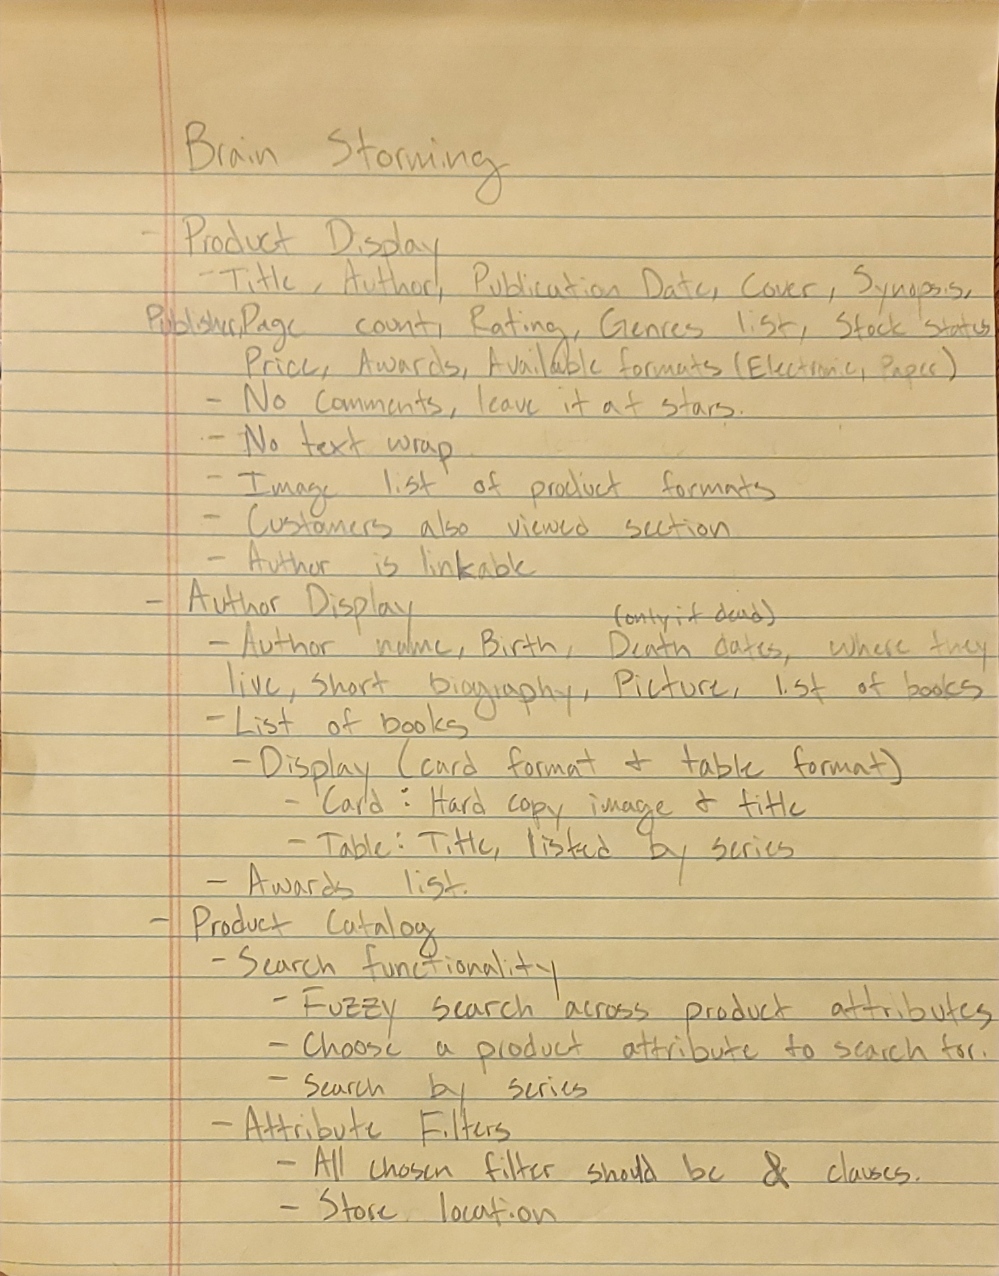 Brain Storming
- Product Display
- Title, Author, Publication Date, Cover, Synopsis,
Publisher, Page count, Rating, Genres list, Stock status
Price, Awards, Available formats (Electronic, Paper)
- No comments, leave it at stars.
- No text wrap
- Image list of product formats
- Customers also viewed section
- Author is linkable
- Author Display
(only if dead)
- Author name, Birth, Death dates, where they
live, short biography, Picture, list of books
- List of books
- Display (card format & table format)
- Card: Hard copy image & title
- Table: Title, listed by series
- Awards list.
- Product Catalog
- Search functionality
- Fuzzy search across product attributes
- Choose a product attribute to search for.
- Search by series
- Attribute Filters
- All chosen filter should be & clauses.
- Store location